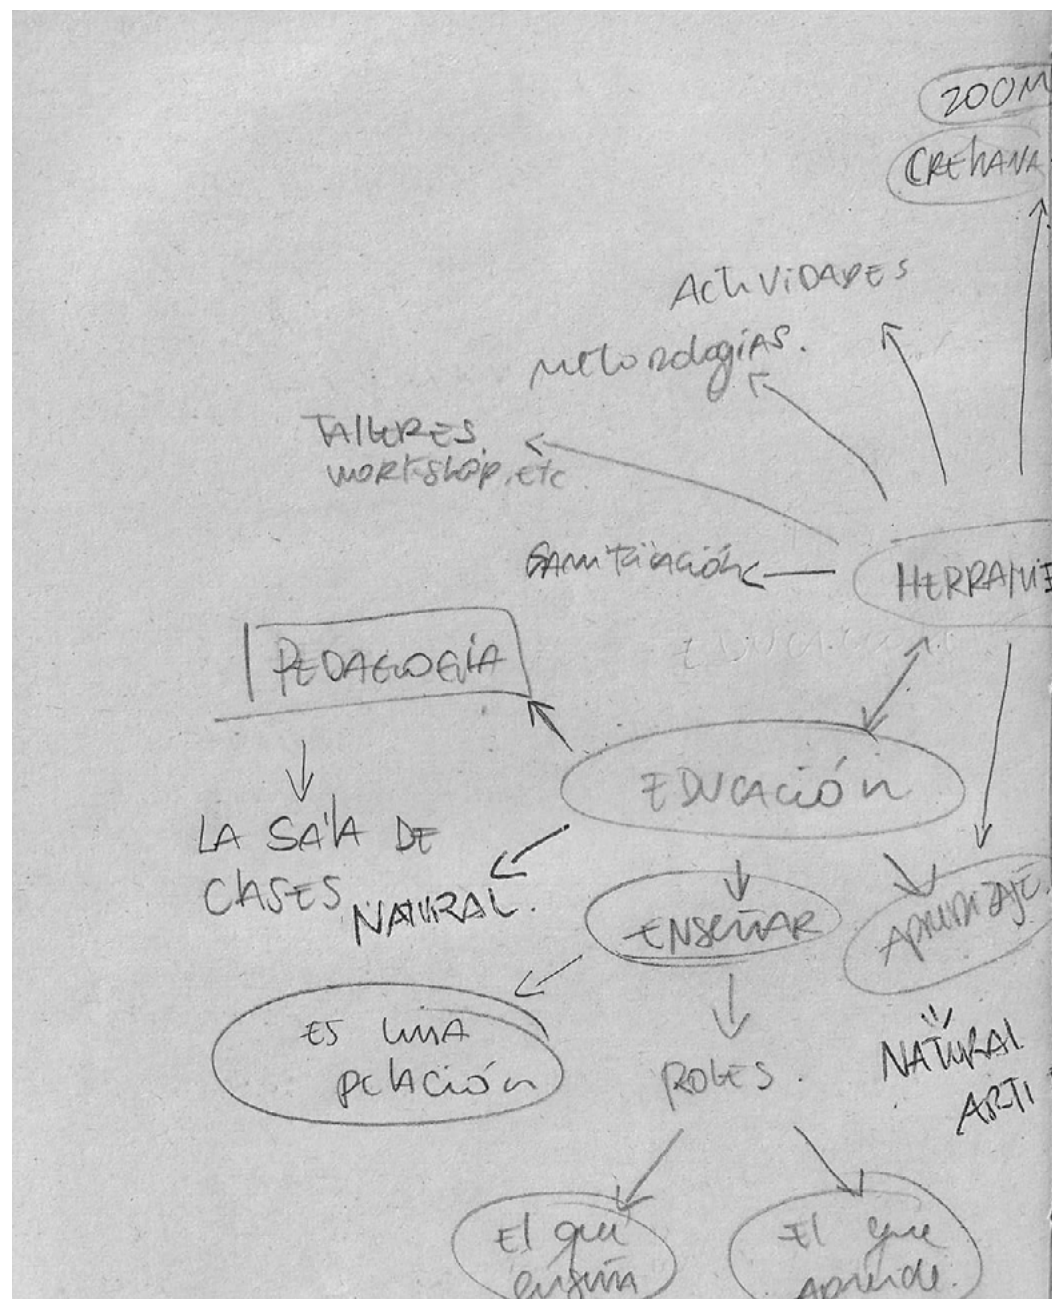 ZOOM
CREHANA
ACTIVIDADES
METODOLOGÍAS.
TALLERES
WORKSHOP, etc
GAMIFICACIÓN
HERRAMIE
PEDAGOGÍA
EDUCACIÓN
LA SALA DE
CLASES
NATURAL.
ENSEÑAR
APRENDIZAJE
ES UNA
RELACIÓN
ROLES.
NATURAL
ARTI
El que
enseña
El que
Aprende.